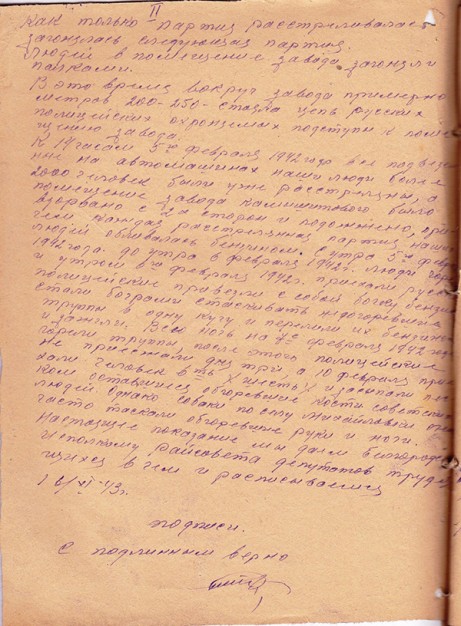 II
Как только партия расстреливалась
загонялась следующая партия.
Людей в помещение завода загоняли
палками.
В это время вокруг завода примерно
метров 200-250 - стояла цепь русских
полицейских охраняемая подступы к поме-
щению завода.
К 19 часам 5го февраля 1942 года все подвезен-
ные на автомашинах наши люди более
2000 человек были уже расстреляны, а
помещение завода камышитового было
взорвано с 2х сторон и подожжено, при-
чем каждая расстрелянная партия наших
людей обливалась бензином. С утра 5го февр
1942 года до утра 6 февраля 1942 г. люди горе
и утром 6го февраля 1942 г. приехали русск
полицейские привезли с собой бочку бензин
стали баграми стаскивать недогоревшие
трупы в одну кучу и перелили их бензином
и зажгли. Всю ночь на 7е февраля 1942 года
горели трупы, после этого полицейские
не приезжали дня три, а 10 февраля прие
хали человек 5ть \ шесть \ и засыпали пес
ком оставшиеся обгоревшие кости советских
людей. Однако собаки по селу Михайловки очень
часто таскали обгоревшие руки и ноги.
Настоящее показание мы даем Белгородск
исполкому Райсовета депутатов трудя
щихся в чем и расписываемся
16/VI-43г.
подписи.
С подлинным верно